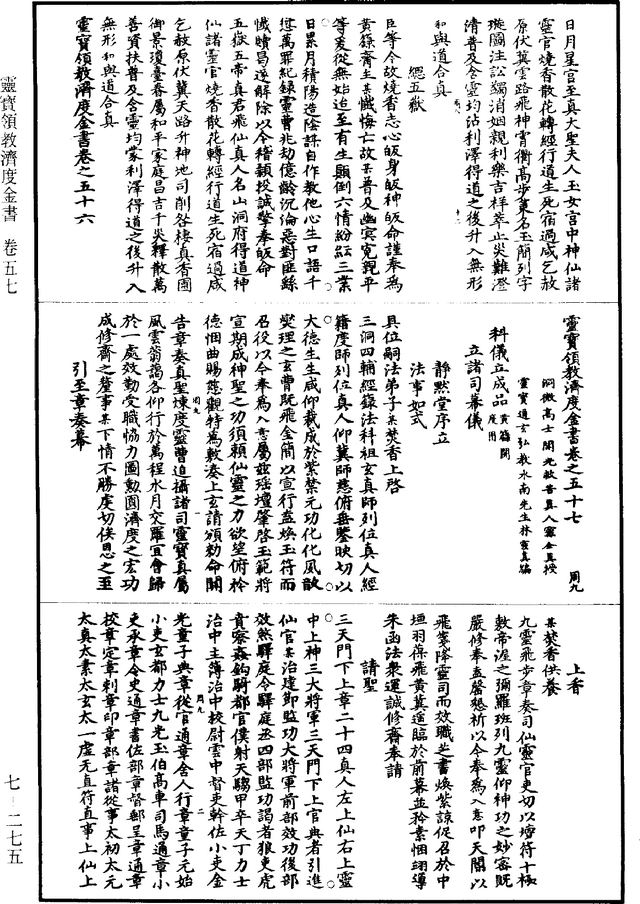 日月星宮至真大聖夫人玉女宮中神仙諸
靈官燒香散花轉經行道生死宿過咸乞赦
原伏冀雲路飛神霄衢高步東名玉簡列字
璇圖注訟蠲消姻親利樂吉祥萃止災難澄
清普及含靈均沾利澤得道之後升入無形
和與道合真
總五嶽
臣等今故燒香志心皈身皈神皈命謹奉為
黃籙齋主某懺悔亡故某普及幽冥冤親平
等爰從無始迄至有生顛倒六情紛紜三業
日累月積陽造陰謀自作教他心生口語千
愆萬罪紀錄靈曹兆劫億齡沉淪惡對匪緣
懺贖曷遂解除以今稽顙投誠擎奉皈命
五嶽五帝真君飛仙真人名山洞府得道神
仙諸靈官燒香散花轉經行道生死宿過咸
乞赦原伏冀天路升神地司削咎棲真香園
御景瓊臺眷屬和平家庭昌吉千災釋散萬
善資扶普及含靈均蒙利澤得道之後升入
無形和與道合真
靈寶領教濟度金書卷之五十六
靈寶領教濟度金書卷之五十七
洞微高士開光救苦真人甯全真授
靈寶通玄弘教水南先生林靈真編
科儀立成品
立諸司幕儀
靜默堂序立
法事如式
具位嗣法弟子某焚香上啓
三洞四輔經籙法科祖玄真師列位真人經
籍度師列位真人仰冀師慈俯垂鑒映切以
大德生生咸仰裁成於紫禁元功化化風歆
燮理之玄曹既飛金簡以宣行盍煥玉符而
召役以今奉為入意屬茲瑤壇肇啓玉範將
宣期成神聖之功須賴仙靈之力欲望俯矜
德悃曲賜慈觀特為敷湊上玄請頒勑命關
告章奏真聖煉度靈曹追攝諸司靈寶真屬
風雲翕謁各仰行於萬程水月交羅宜會歸
於一處效勤受職協力圖勳圓濟度之宏功
成修齋之釐事某下情不勝虔切俟恩之至
引至章奏幕
上香
某焚香供養
九靈飛步章奏司仙靈官吏切以增符十極
敷帝渥之彌羅班列九靈仰神功之妙密既
嚴修奉盍罄懇祈以今奉為入意叩天闕以
飛章降靈司而效職是書煥紫諒促召於中
垣羽葆飛黃冀遄臨於前幕並矜素悃翊導
朱函法衆運誠修齋奉請
請聖
三天門下上章二十四真人左上仙右上靈
中上神三大將軍三天門下上官典者引進
仙官某治建節監功大將軍前部效功後部
效煞驛庭令驛庭丞四部監功謁者狼吏虎
賁察姦鉤騎都官僕射天騶甲卒天丁力士
治中主簿治中校尉雲中督吏幹佐小吏金
光童子典章從官通章舍人行章童子元始
小吏玄都力士九光玉伯高車司馬通章小
吏承章令史通章書佐部章督郵呈章通章
校章定章刺章印章部章諸從事太初太元
太真太素太玄太一虛无直符直事上仙上
靈寶領教濟度金書 卷五七
七—二七五